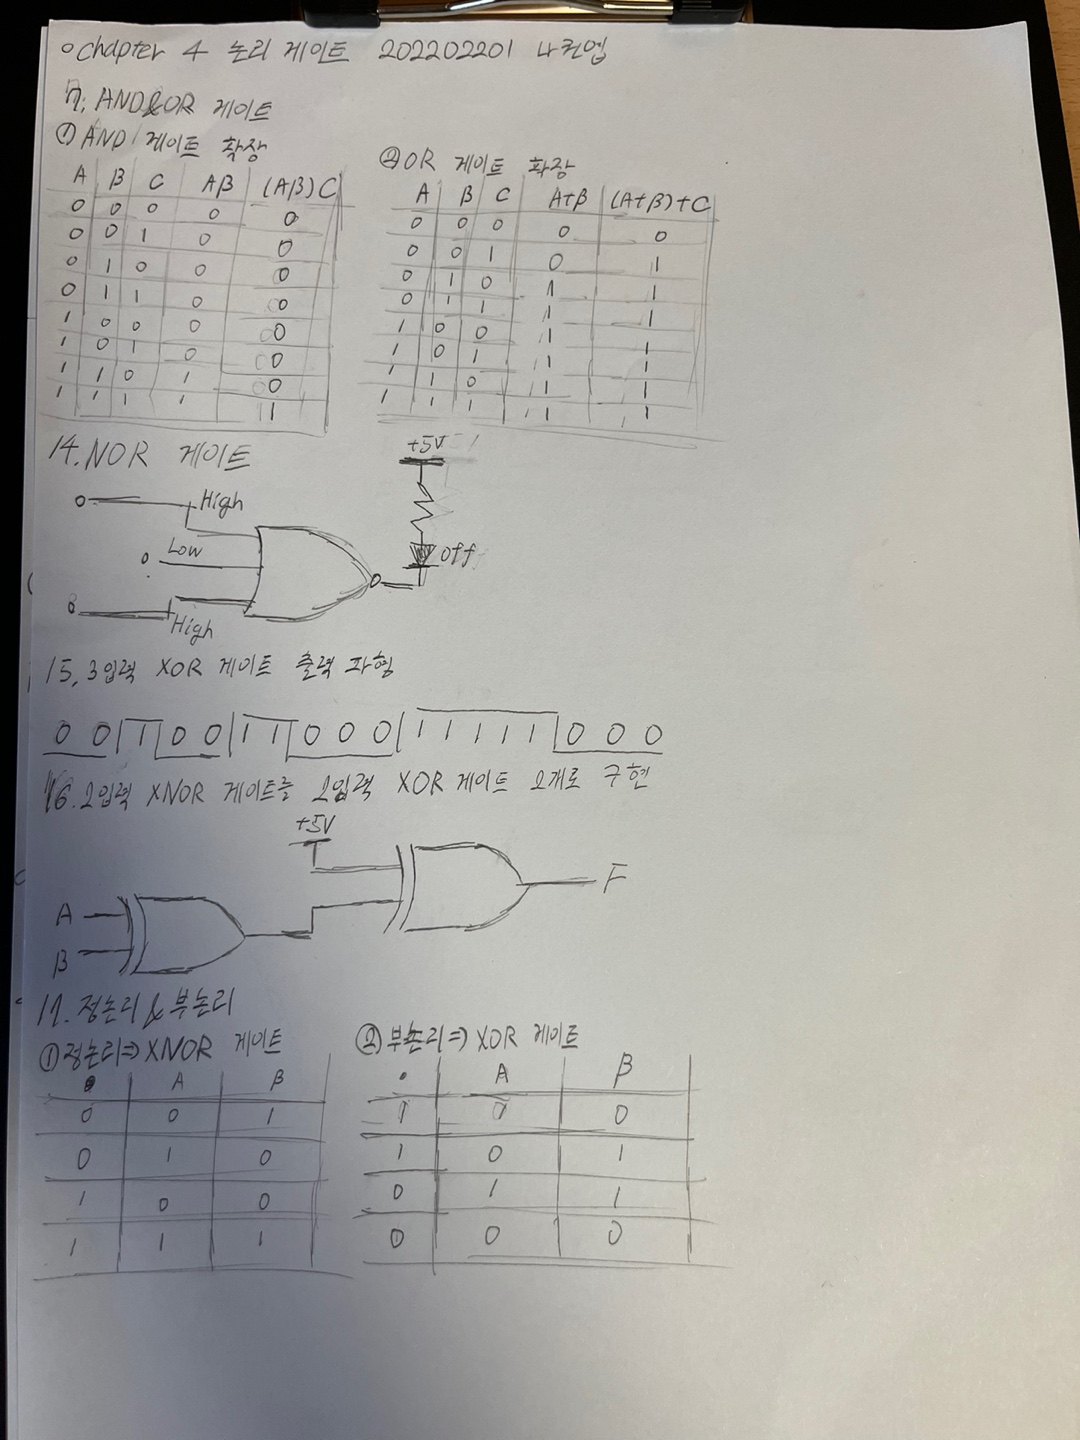 o Chapter 4 논리 게이트 202202201 나컨엽
7. AND&OR 게이트
① AND 게이트 확장
A B C AB (AB)C
0 0 0 0 0
0 0 1 0 0
0 1 0 0 0
0 1 1 0 0
1 0 0 0 0
1 0 1 0 0
1 1 0 1 0
1 1 1 1 1
② OR 게이트 확장
A B C A+B (A+B)+C
0 0 0 0 0
0 0 1 0 1
0 1 0 1 1
0 1 1 1 1
1 0 0 1 1
1 0 1 1 1
1 1 0 1 1
1 1 1 1 1
14. NOR 게이트
+5V
High
Low
off
High
15. 3입력 XOR 게이트 출력 파형
0 0 1 0 0 1 1 0 0 0 1 1 1 1 1 0 0 0
16. 2입력 XNOR 게이트를 2입력 XOR 게이트 2개로 구현
+5V
F
A
B
17. 정논리 & 부논리
① 정논리⇒ XNOR 게이트
A B
0 0 1
0 1 0
1 0 0
1 1 1
② 부논리⇒ XOR 게이트
A B
1 1 0
1 0 1
0 1 1
0 0 0